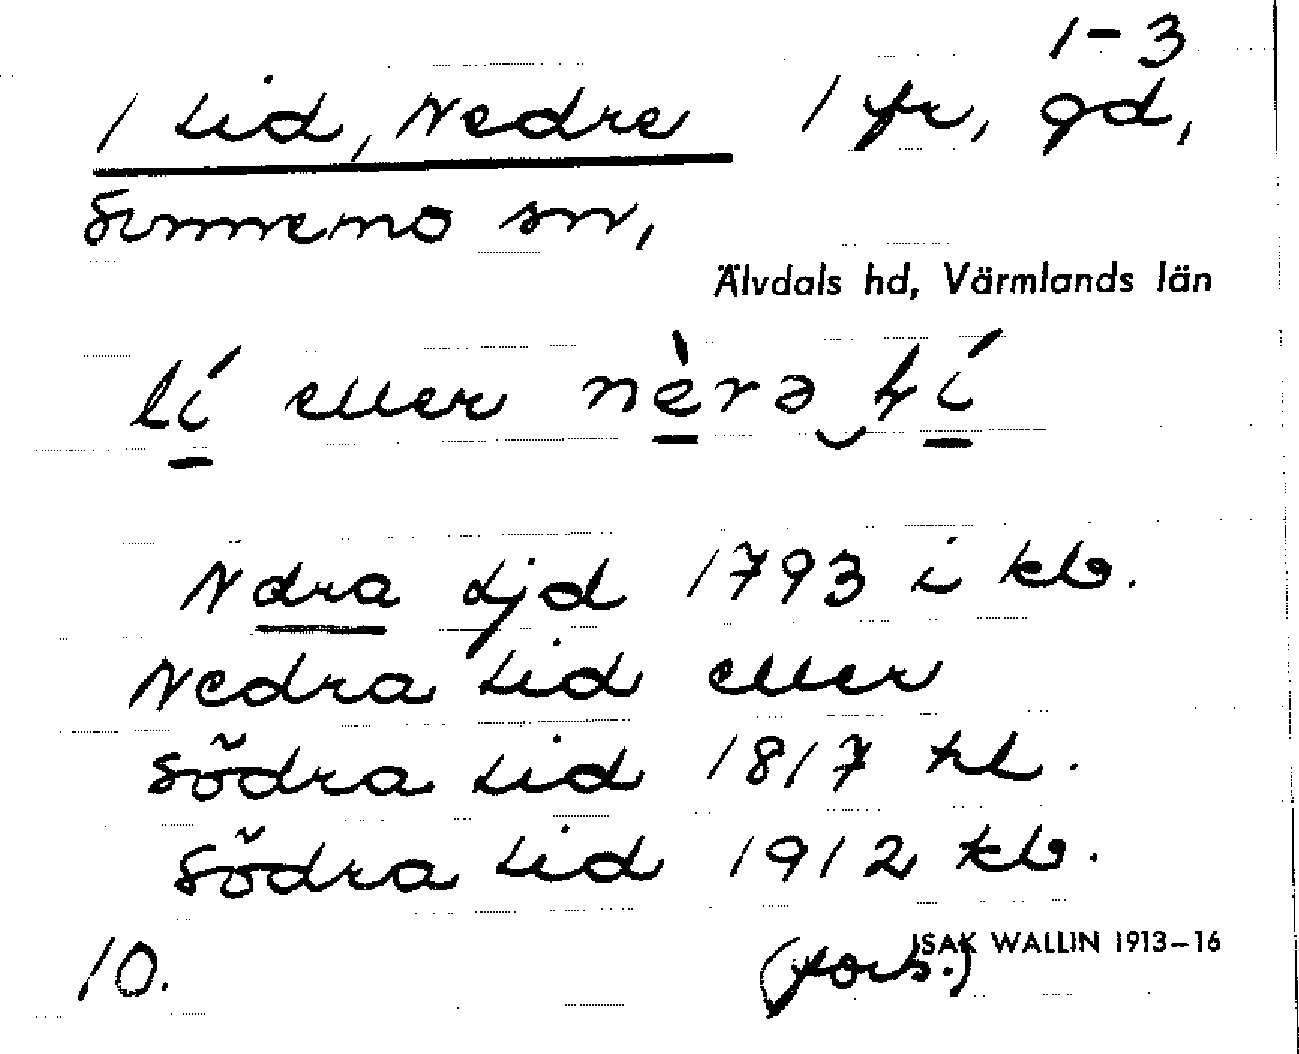 1-3
1 Lid, Nedre 1 fr, gd,
Sunnemo sn,
Älvdals hd, Värmlands län
lí eller nèrə lí
Ndra Ljd 1793 i kb.
Nedra Lid eller
Södra Lid 1817 hl.
Södra Lid 1912 kb.
10. (forts.) ISAK WALLIN 1913-16